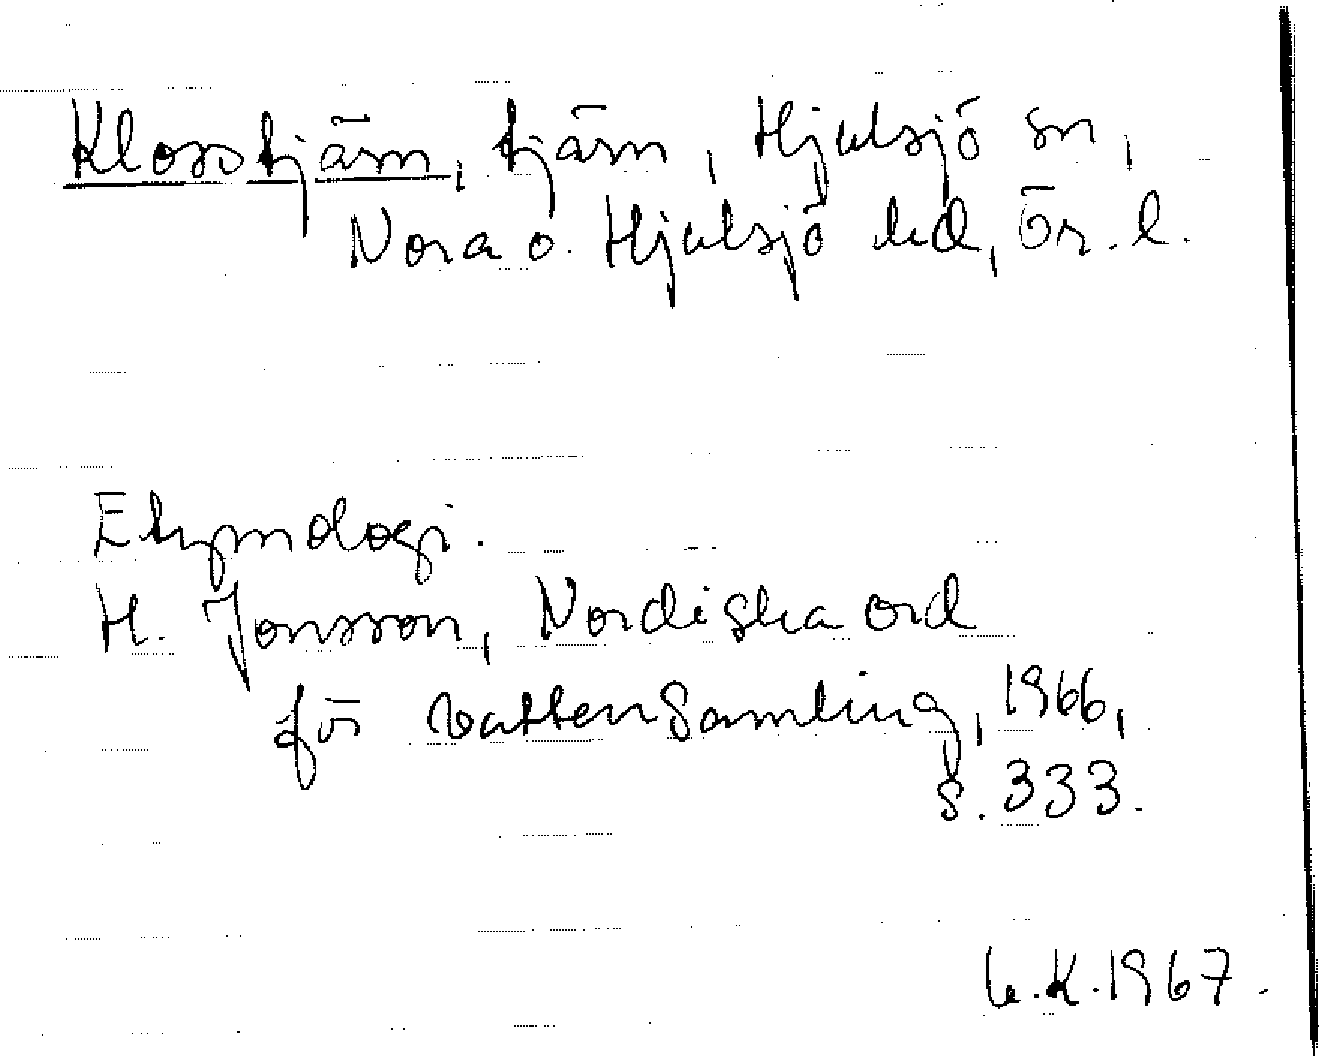 Klosstjärn, tjärn, Hjulsjö sn,
Nora o. Hjulsjö hd, Ör. l.
Etymologi.
H. Jonsson, Nordiska ord
för vattensamling, 1966,
s. 333.
K. 1967.